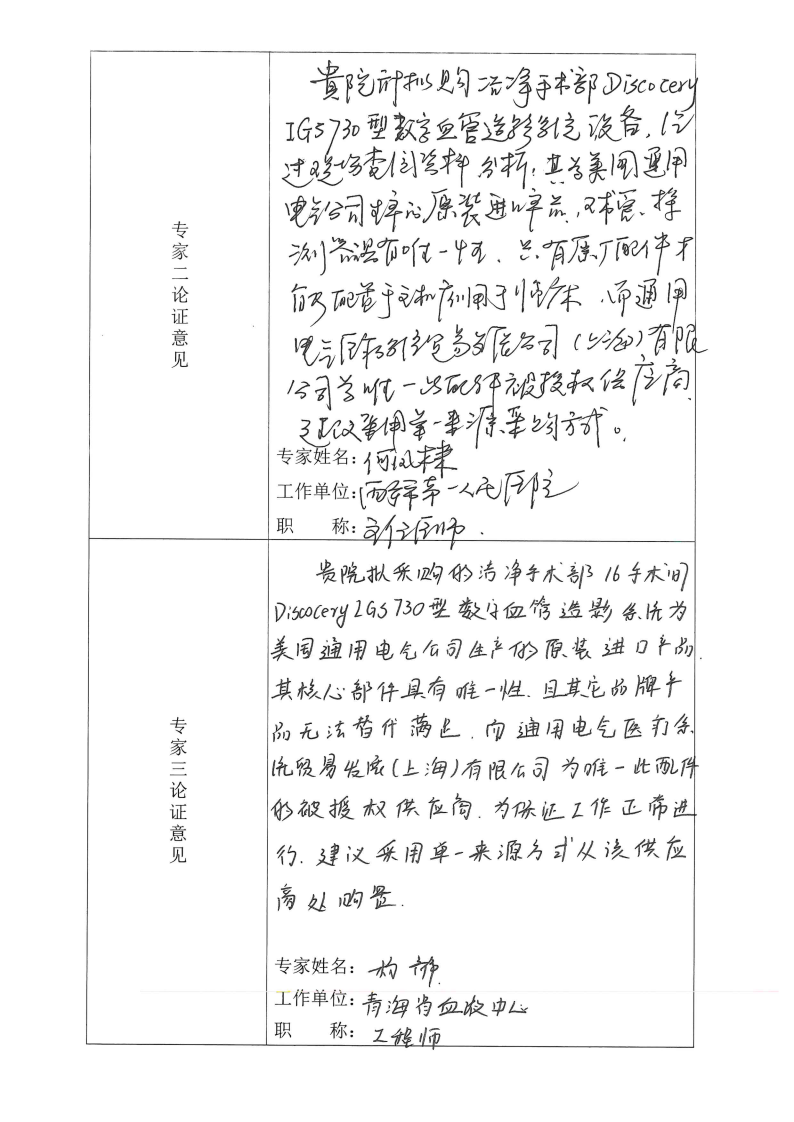 专家二论证意见
贵院计拟购洁净手术部Discocery
IGS730型数字血管造影系统设备,经
过现场查阅资料分析,其为美国通用
电气公司生产的原装进口产品,球管、探
测器具有唯一性,只有原厂配件才
能配置于主机应用于手术,而通用
电气医疗系统贸易发展公司(上海)有限
公司为唯一此配件被授权供应商
建议采用单一来源采购方式。
专家姓名:何凤棣
工作单位:西宁市第一人民医院
职 称:主任医师.
专家三论证意见
贵院拟采购的洁净手术部16手术间
Discocery IGS730型数字血管造影系统为
美国通用电气公司生产的原装进口产品.
其核心部件具有唯一性.且其它品牌产
品无法替代满足.而通用电气医疗系
统贸易发展(上海)有限公司为唯一此配件
的被授权供应商.为保证工作正常进
行.建议采用单一来源方式从该供应
商处购置.
专家姓名:
工作单位:青海省血液中心
职 称:工程师